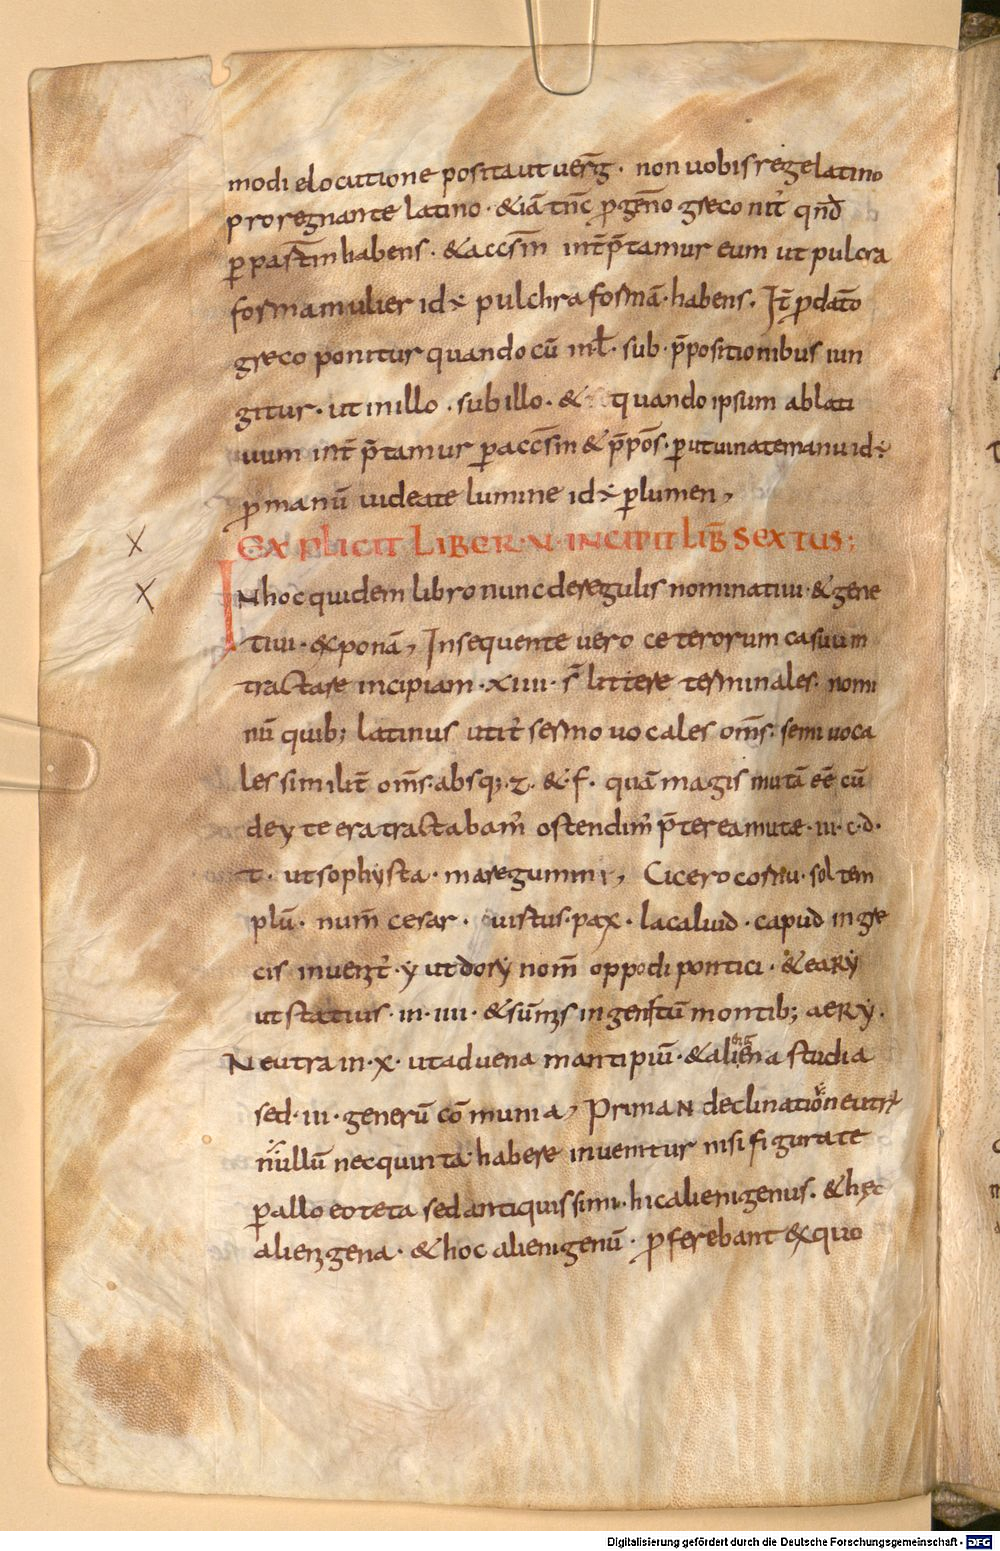 modi elocutione posita ut uerḡ · non uobis rege latino
pro regnante latino · &iā tn̄c ꝓ geno greco nit᷒ qn̄d
ꝑ passm̄ habens · & accsm̄ int̄p̄tamur eum ut pulcra
forma mulier id ÷ pulchra formā · habens . It̄ ꝓ dat̄o
greco ponitur quando cū in ł · sub · p̄positionibus iun
gitur · ut in illo . sub illo · & quando ipsum ablati
uum int̄ p̄tamur ꝑ accsm̄ & p̄pos̄ · ꝑ ut uina te manu id ÷
ꝑ manū uideate lumine id ÷ ꝑ lumen ,
EXPLICIT LIBER · V · INCIPIT LIB̄ SEXTUS ;
IN hoc quidem libro nunc de regulis nominatiui · & gene
tiui · & ponā , In sequente uero ceterorum casuum
tractare incipiam · xiiii · s̄ littere terminales · nomi
nū quib; latinus utit᷒ sermo uocales om̄s · semiuoca
les similit̄ om̄s · absq; · z · & · f · quā magis mutā eē cū
de y te era tractabam᷒ ostendim᷒ p̄terea mutę · iii · c · d ·
t · ut sophysta · mare gummi , Cicero cornu · sol tem
plū · num̄ cesar · uirtus · pax · lac aluid · capud in gre
cis inuenit᷒ · y ut dory nom̄ oppodi pontici · & eary
ut statius · in · iiii · & sūmis ingenstū montib; aery .
Neutra in · x · ut aduena mantipiū · & aliena studia
sed · iii · generū co᷒munia , Prima N declination̄ neutr̄
nullū nec quinta habere inuenitur nisi figurate
ꝑ alloeoteta sed antiquissimi · hic alienigenus . & hęc
alienigena · & hoc alienigenū · ꝓferebant & quo